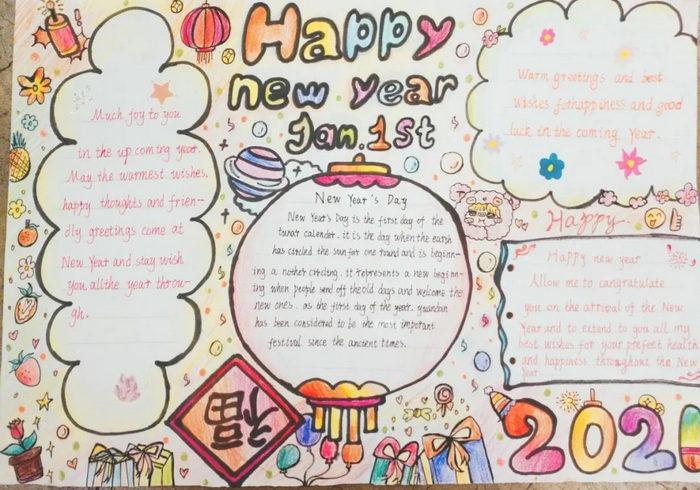 Happy
new year
Jan.1st
Much joy to you
in the up coming year.
May the warmest wishes,
happy thoughts and frien-
dly greetings come at
New Year and stay wish
you all the year throu-
gh.
New Year's Day
New Year's Day is the first day of the
lunar calender. it is the day when the earth
has circled the sun for one round and is beginn-
ing a nother circling. it represents a new beginn-
ing when people send off the old days and welcome the
new ones. as the first day of the year. yuandan
has been considered to be the most important
festival since the ancient times.
福
Warm greetings and best
wishes forhappiness and good
luck in the coming year.
Happy
Happy new year
Allow me to congratulate
you on the arrival of the New
Year and to extend to you all my
best wishes for your prefect health
and happiness throughout the New
Year
202